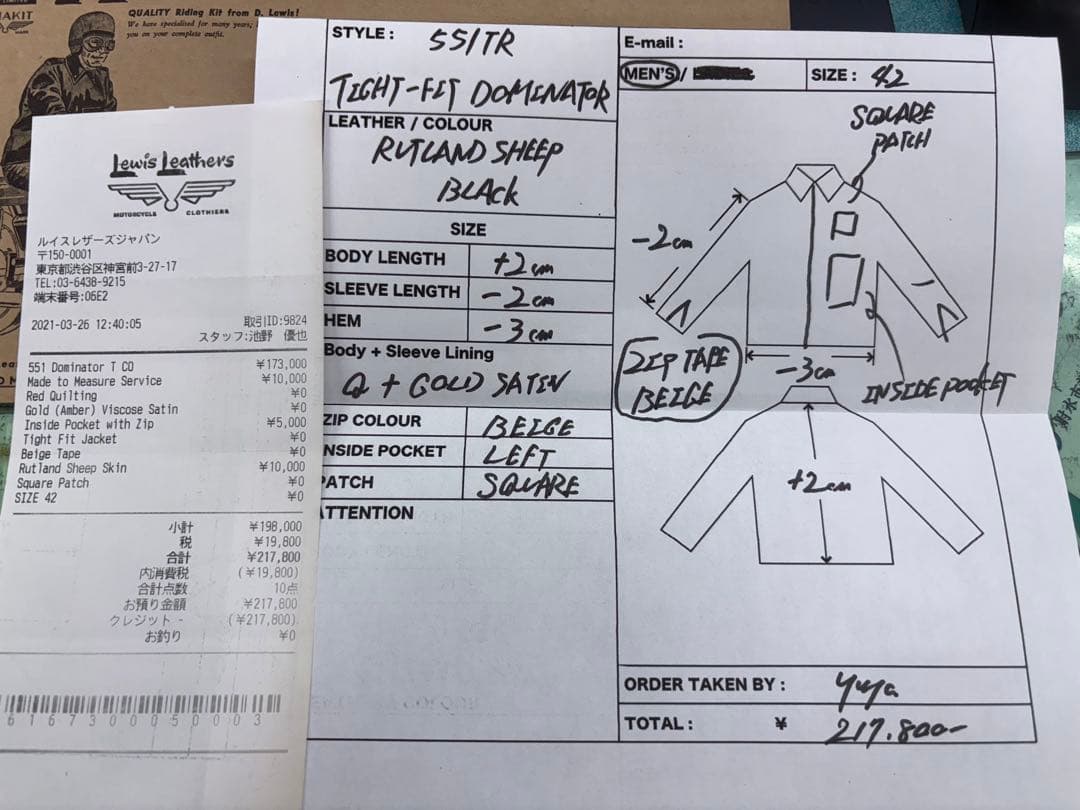 QUALITY Riding Kit from D. Lewis!
We have specialised for many years,
you on your complete outfit.
Lewis Leathers
MOTORCYCLE CLOTHIERS
ルイスレザーズジャパン
〒150-0001
東京都渋谷区神宮前3-27-17
TEL:03-6438-9215
端末番号:06E2
2021-03-26 12:40:05 取引ID:9824
スタッフ:池野 優也
551 Dominator T CO ¥173,000
Made to Measure Service ¥10,000
Red Quilting ¥0
Gold (Amber) Viscose Satin ¥0
Inside Pocket with Zip ¥5,000
Tight Fit Jacket ¥0
Beige Tape ¥0
Rutland Sheep Skin ¥10,000
Square Patch ¥0
SIZE 42 ¥0
小計 ¥198,000
税 ¥19,800
合計 ¥217,800
内消費税 (¥19,800)
合計点数 10点
お預り金額 ¥217,800
クレジット - (¥217,800)
お釣り ¥0
6167300050003
STYLE : 551TR
TIGHT-FIT DOMINATOR
LEATHER / COLOUR
RUTLAND SHEEP
BLACK
SIZE
BODY LENGTH +2cm
SLEEVE LENGTH -2cm
HEM -3cm
Body + Sleeve Lining
Q + GOLD SATIN
ZIP COLOUR BEIGE
NSIDE POCKET LEFT
PATCH SQUARE
ATTENTION
E-mail :
MEN'S /
SIZE : 42
SQUARE
PATCH
-2cm
ZIP TAPE
BEIGE
-3cm
INSIDE POCKET
+2cm
ORDER TAKEN BY : yuya
TOTAL : ¥ 217.800-